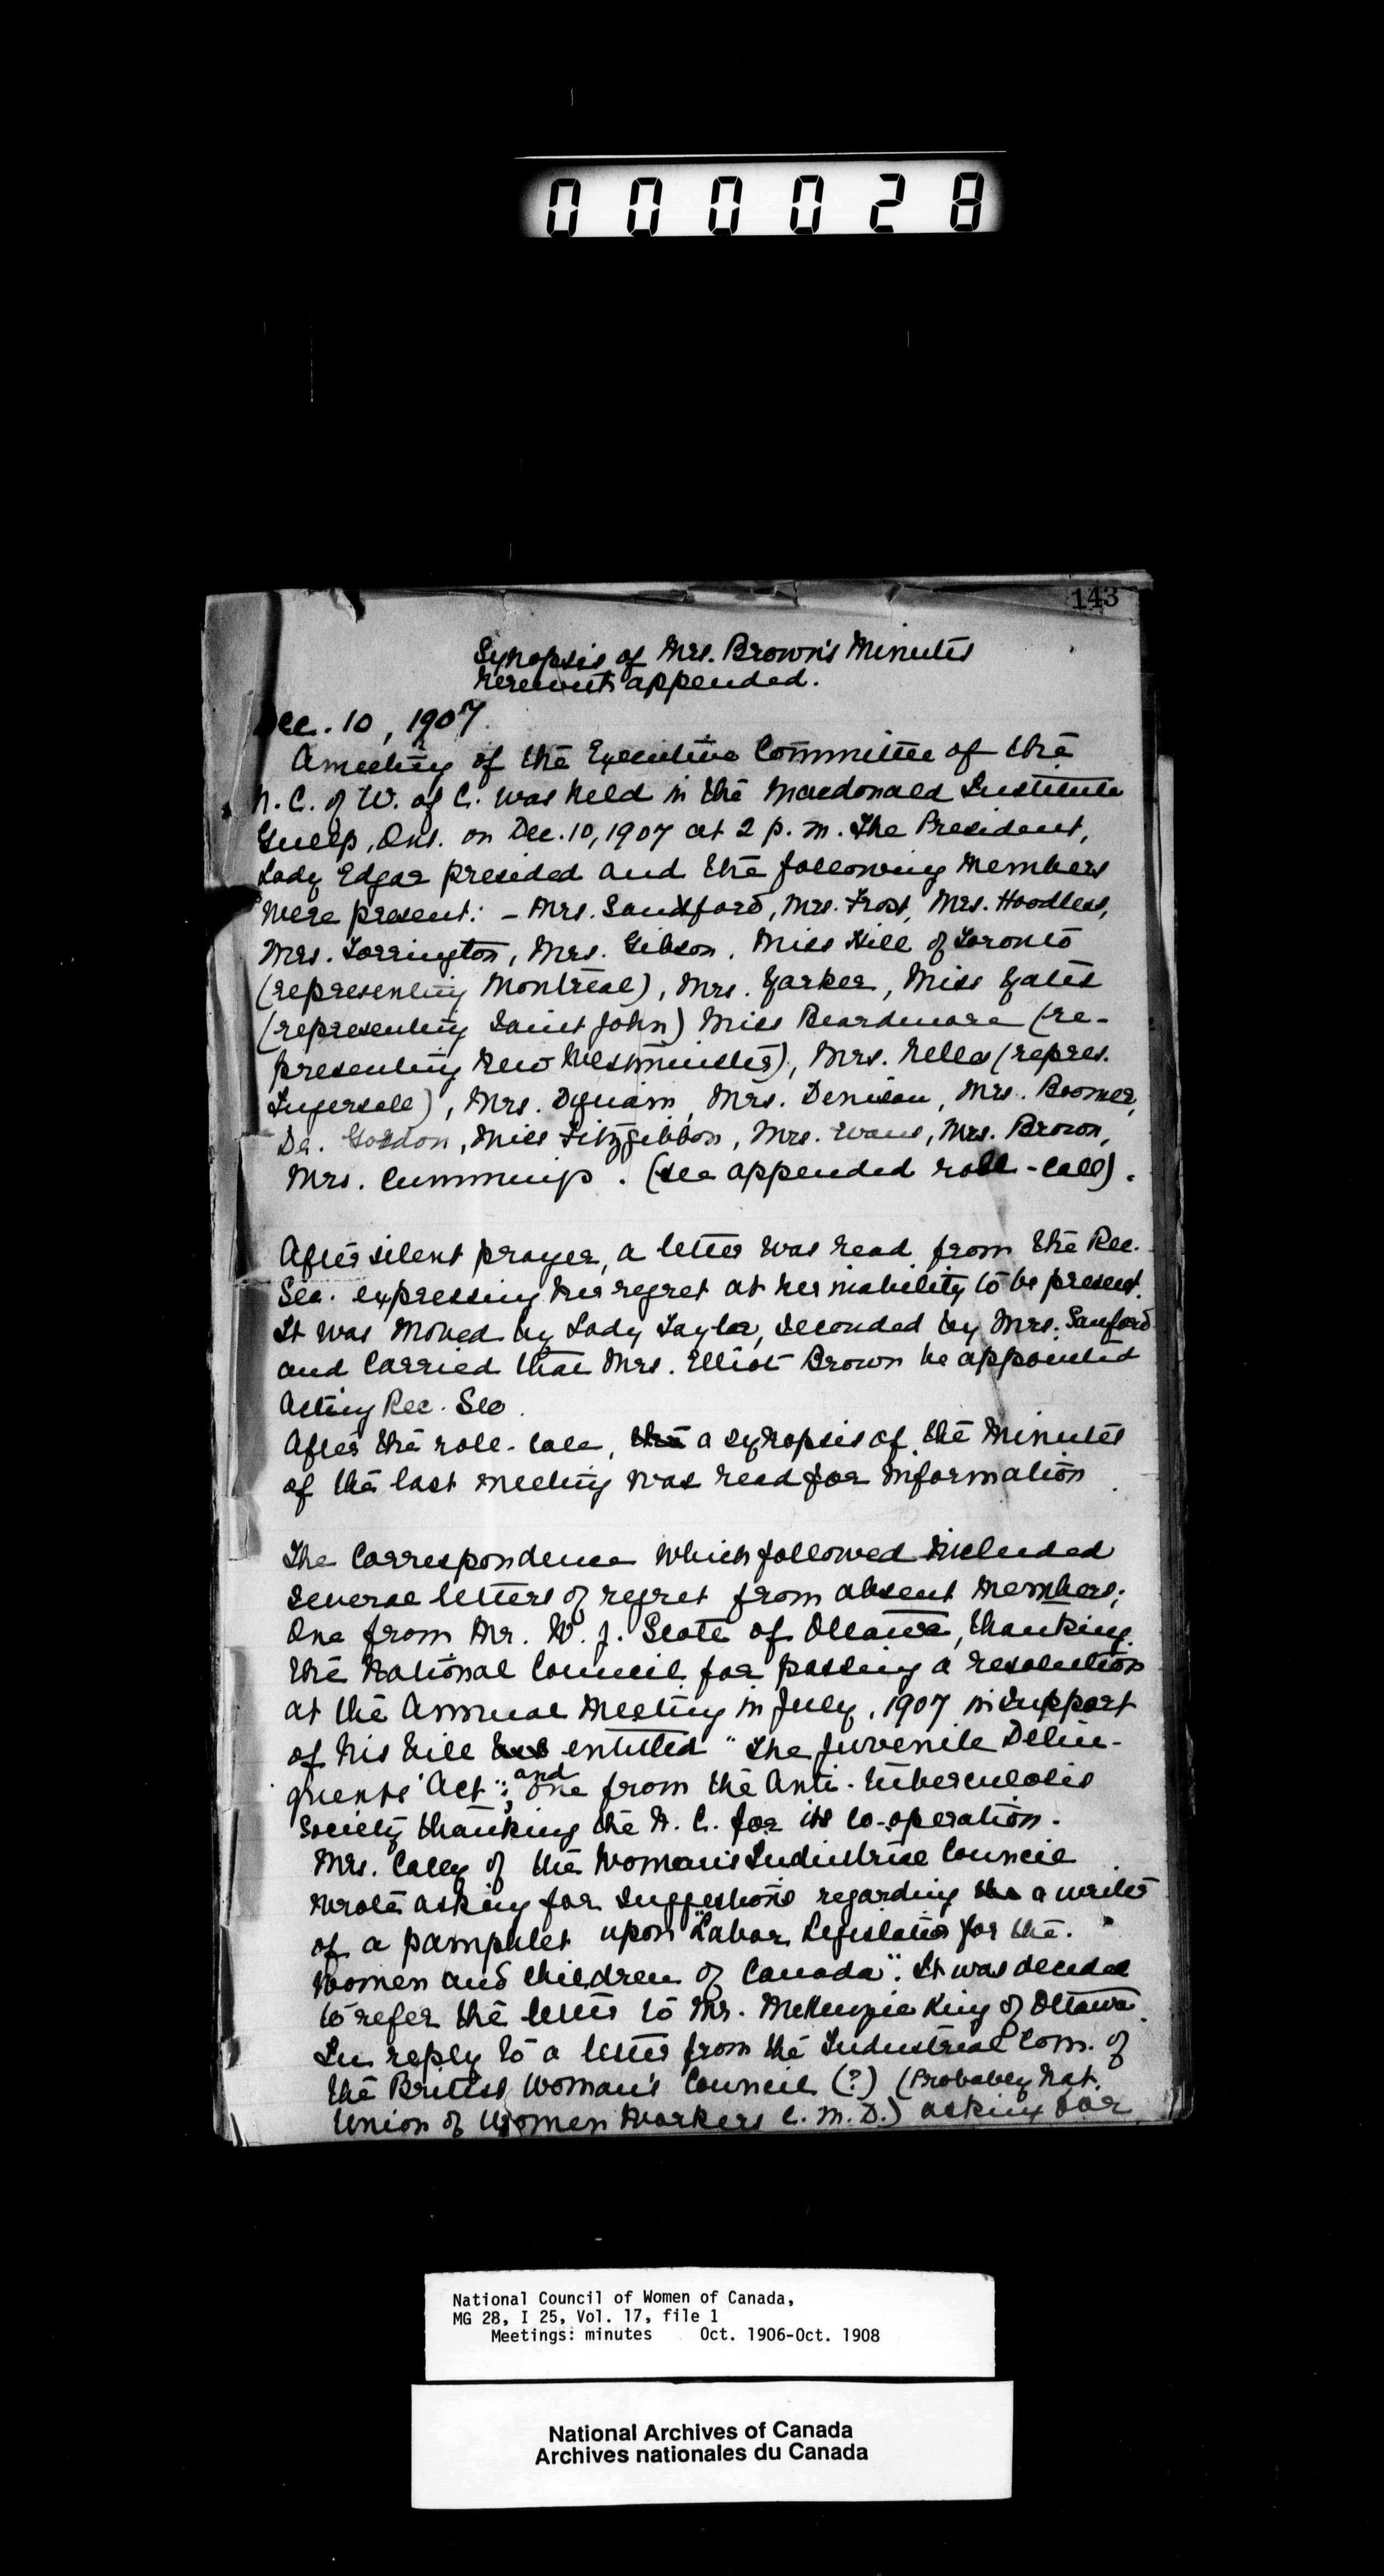 000028
143
Synopsis of Mrs. Brown's Minutes
herewith appended.
Dec. 10, 1907
A meeting of the Executive Committee of the
N. C. of W. of C. was held in the Macdonald Institute
Guelp, Ont. on Dec. 10, 1907 at 2 p. m. The President,
Lady Edgar presided and the following members
were present: - Mrs. Sandford, Mrs. Frost, Mrs. Hoodless,
Mrs. Torrington, Mrs. Gibson, Miss Hill of Toronto
(representing Montreal), Mrs. Yarker, Miss Yates
(representing Saint John) Miss Beardmore (re-
presenting New Westminster), Mrs. Nelles (repres.
Ingersoll), Mrs. Dignam, Mrs. Denison, Mrs. Boomer,
Dr. Gordon, Miss Fitzgibbon, Mrs. Evans, Mrs. Brown,
Mrs. Cummings. (see appended roll-call).
After silent prayer, a letter was read from the Rec.
Sec. expressing her regret at her inability to be present.
It was moved by Lady Taylor, seconded by Mrs. Sanford
and carried that Mrs. Elliot Brown be appointed
Acting Rec. Sec.
After the roll-call, the a synopsis of the minutes
of the last meeting was read for information
The correspondence which followed included
several letters of regret from absent members;
One from Mr. W. J. Scote of Ottawa, thanking
the National Council for passing a resolution
at the Annual Meeting in July, 1907 in support
of his bill entitled "The Juvenile Delin-
quents' Act"; and one from the Anti-tuberculosis
Society thanking the N. C. for its co-operation.
Mrs. Calley of the Woman's Industrial Council
wrote asking for suggestions regarding the a writer
of a pamphlet upon "Labor Legislation for the
women and children of Canada". It was decided
to refer the letter to Mr. McKenzie King of Ottawa.
In reply to a letter from the Industrial Com. of
the British Woman's Council (?) (Probably Nat.
Union of Women Workers C. M. D.) asking for
National Council of Women of Canada,
MG 28, I 25, Vol. 17, file 1
Meetings: minutes Oct. 1906-Oct. 1908
National Archives of Canada
Archives nationales du Canada